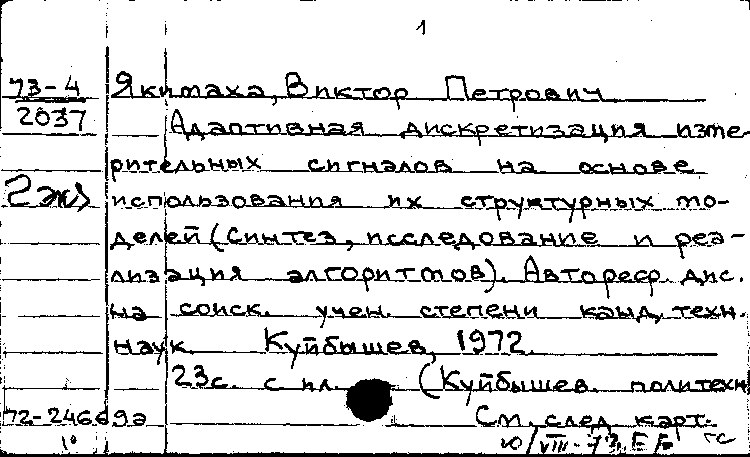 1
73-4
2037
Якимаха, Виктор Петрович
Адаптивная дискретизация изме-
рительных сигналов на основе
2
использования их структурных мо-
делей (синтез, исследование и реа-
лизация алгоритмов). Автореф. дис.
на соиск. учен. степени канд. техн.
наук. Куйбышев, 1972.
23с. с ил. (Куйбышев. политехн
См. след. карт.